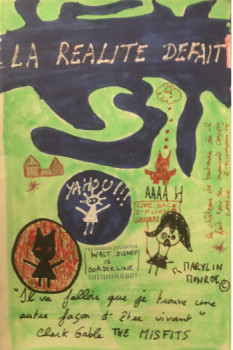 LA REALITE DEFAIT
YAHOU!!!
AAAA H
COME BACK
WALT DISNEY
IS
BORDERLINE
MARYLIN
MONROE ©
"Il va falloir que je trouve une
autre façon d'être vivant"
Clark Gable THE MISFITS